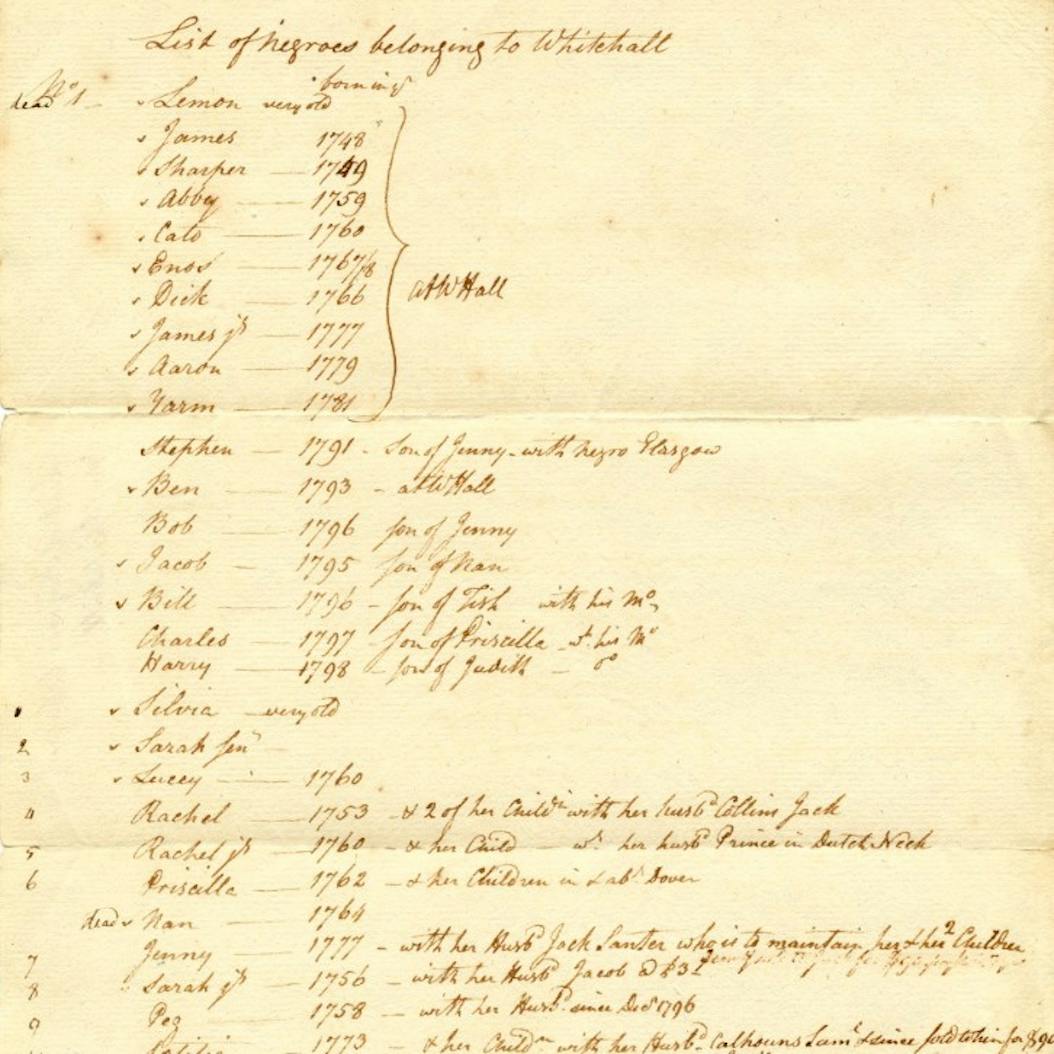 List of negroes belonging to Whitehall
born in yr
dead No 1 - Lemon very old
James 1748
Sharper 1749
Abby 1759
Cato 1760
Enos 1767/8
Dick 1766
at W Hall
James jr 1777
Aaron 1779
Yarm 1781
Stephen 1791 - Son of Jenny - with negro Glasgow
Ben 1793 - at W Hall
Bob 1796 son of Jenny
Jacob 1795 son of Nan
Bill 1796 - son of Tish with his Mo
Charles 1797 - son of Priscilla - wt his Mo
Harry 1798 - son of Judith - Do
1 Silvia - very old
2 Sarah Senr
3 Lucey 1760
4 Rachel 1753 - & 2 of her Childn with her husbd Collins Jack
5 Rachel jr 1760 - & her Child - wt her husbd Prince in Dutch Neck
6 Priscilla 1762 - & her Children in & abt Dover
dead Nan 1764
7 Jenny 1777 - with her Husbd Jack Santer who is to maintain her & her 2 Children
8 Sarah jr 1756 - with her Husbd Jacob
9 Peg 1758 - with her Husbd since Decr 1796
1773 & her Childn with her Husbd Calhouns Saml & since sold to him for